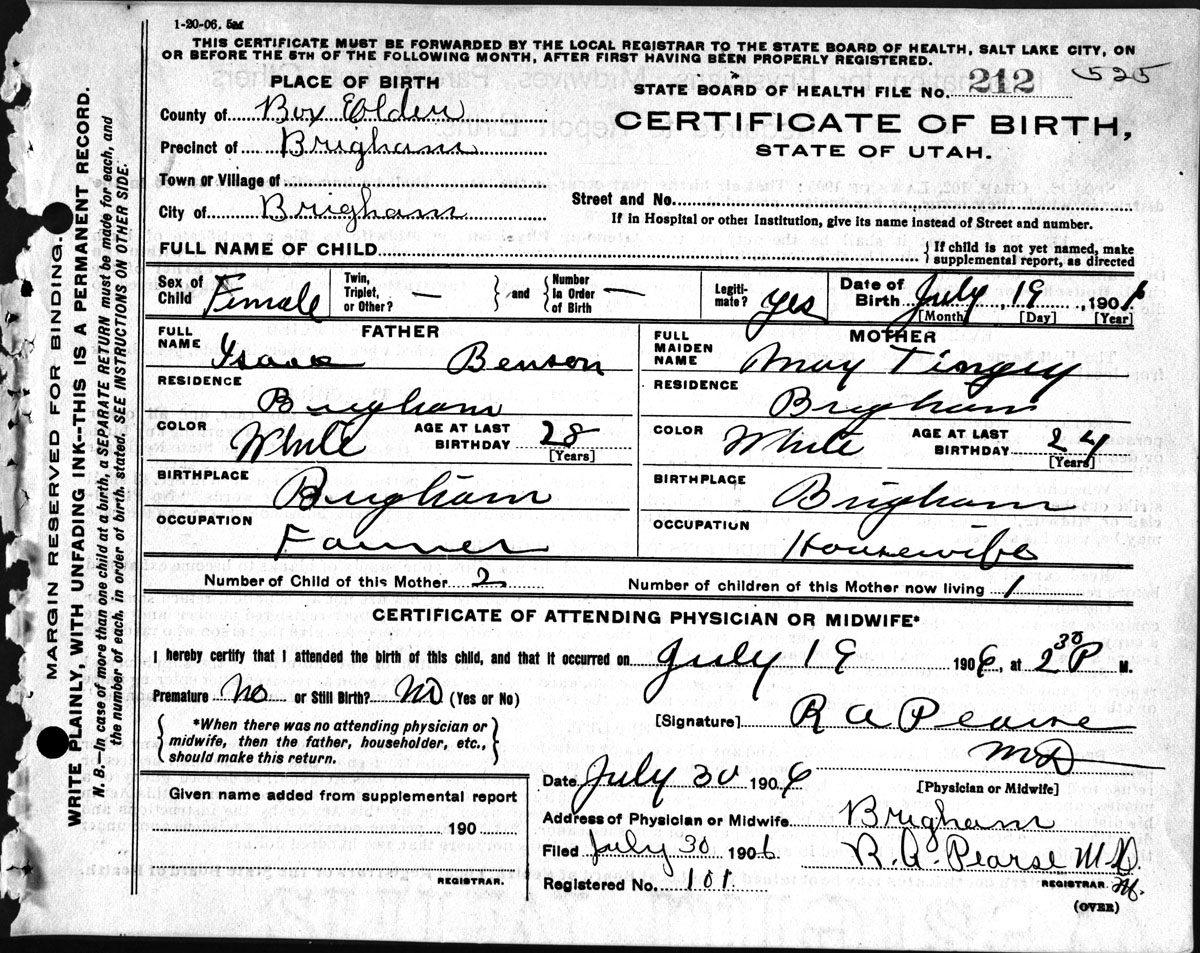 1-20-06. 5M
THIS CERTIFICATE MUST BE FORWARDED BY THE LOCAL REGISTRAR TO THE STATE BOARD OF HEALTH, SALT LAKE CITY, ON
OR BEFORE THE 5TH OF THE FOLLOWING MONTH, AFTER FIRST HAVING BEEN PROPERLY REGISTERED.
525
PLACE OF BIRTH
STATE BOARD OF HEALTH FILE No. 212
County of Box Elder
CERTIFICATE OF BIRTH,
STATE OF UTAH.
Precinct of Brigham
Town or Village of
Street and No.
City of Brigham
If in Hospital or other Institution, give its name instead of Street and number.
FULL NAME OF CHILD
{ If child is not yet named, make
supplemental report, as directed
Sex of Child Female
Twin, Triplet, or Other? —
} and {
Number in Order of Birth —
Legitimate? yes
Date of Birth July 19, 1906
[Month] [Day] [Year]
FATHER
FULL NAME Isaac Benson
RESIDENCE Brigham
COLOR White
AGE AT LAST BIRTHDAY 28
[Years]
BIRTHPLACE Brigham
OCCUPATION Farmer
MOTHER
FULL MAIDEN NAME May Tingey
RESIDENCE Brigham
COLOR White
AGE AT LAST BIRTHDAY 24
[Years]
BIRTHPLACE Brigham
OCCUPATION Housewife
Number of Child of this Mother 2
Number of children of this Mother now living 1
CERTIFICATE OF ATTENDING PHYSICIAN OR MIDWIFE*
I hereby certify that I attended the birth of this child, and that it occurred on July 19 1906, at 2 30 P M.
Premature No or Still Birth? No (Yes or No)
{ *When there was no attending physician or
midwife, then the father, householder, etc.,
should make this return. }
[Signature] R A Pearse
MD
[Physician or Midwife]
Date July 30 1906
Address of Physician or Midwife Brigham
Filed July 30 1906 R. A. Pearse M.D.
REGISTRAR.
Registered No. 101
(OVER)
Given name added from supplemental report
190
REGISTRAR.
MARGIN RESERVED FOR BINDING.
WRITE PLAINLY, WITH UNFADING INK--THIS IS A PERMANENT RECORD.
N. B.—In case of more than one child at a birth, a SEPARATE RETURN must be made for each, and
the number of each, in order of birth, stated. SEE INSTRUCTIONS ON OTHER SIDE.